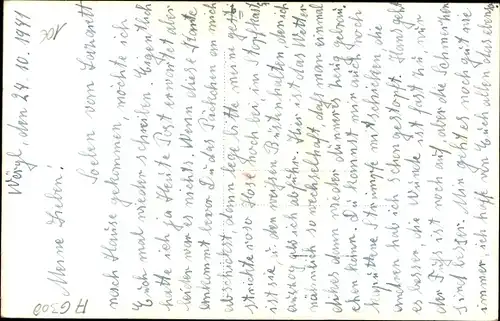 Wörgl, den 24.10.1941
Meine Lieben.
Soeben vom Lazarett
nach Hause gekommen, möchte ich
Euch mal wieder schreiben. Eigentlich
hatte ich ja Heute Post erwartet aber
leider war es nichts. Wenn diese Karte
ankommt bevor Du das Päckchen an mich
abschickst, dann lege bitte meine ge
strickte rosa Hose noch bei, im Stopfkasten
ist sie, u. den weißen Büstenhalter den ich
auszog als ich abfuhr. Hier ist das Wetter
nämlich so wechselhaft, dass man einmal
dickes dann wieder dünneres Zeug gebrau
chen kann. Du kannst mir auch noch
kaputte Strümpfe mitschicken, die
andren hab ich schon gestopft. Hans geht
es besser, die Wunde ist fast zu, nur
der Fuß ist noch auf, aber die Schmerzen
sind besser. Mir geht es noch gut wie
immer, ich hoffe von Euch allen das
A 6300